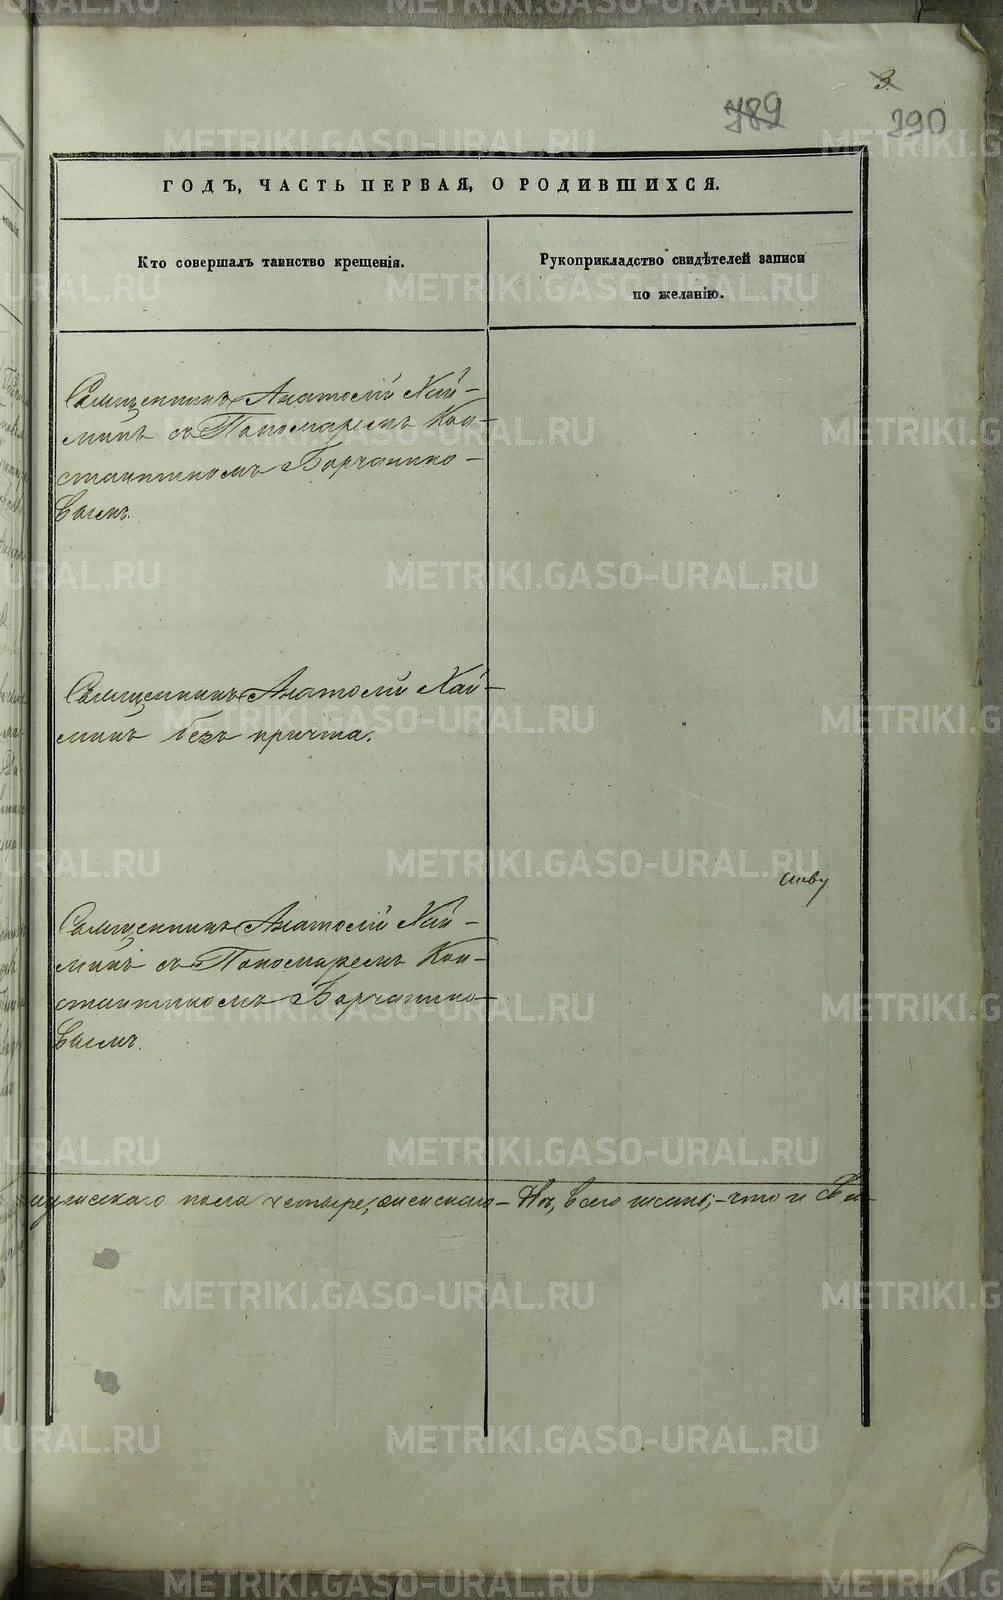 3.
789
390
ГОДЪ, ЧАСТЬ ПЕРВАЯ, О РОДИВШИХСЯ.
Кто совершалъ таинство крещенія.
Рукоприкладство свидѣтелей записи
по желанію.
Священникъ Анатолій Хай-
минъ съ Пономаремъ Кон-
стантиномъ Борчанино-
вымъ.
Священникъ Анатолій Хай-
минъ безъ причта.
Священникъ Анатолій Хай-
минъ съ Пономаремъ Кон-
стантиномъ Борчанино-
вымъ.
мужскаго пола четыре, женскаго - двѣ, всего шесть; - что и
METRIKI.GASO-URAL.RU